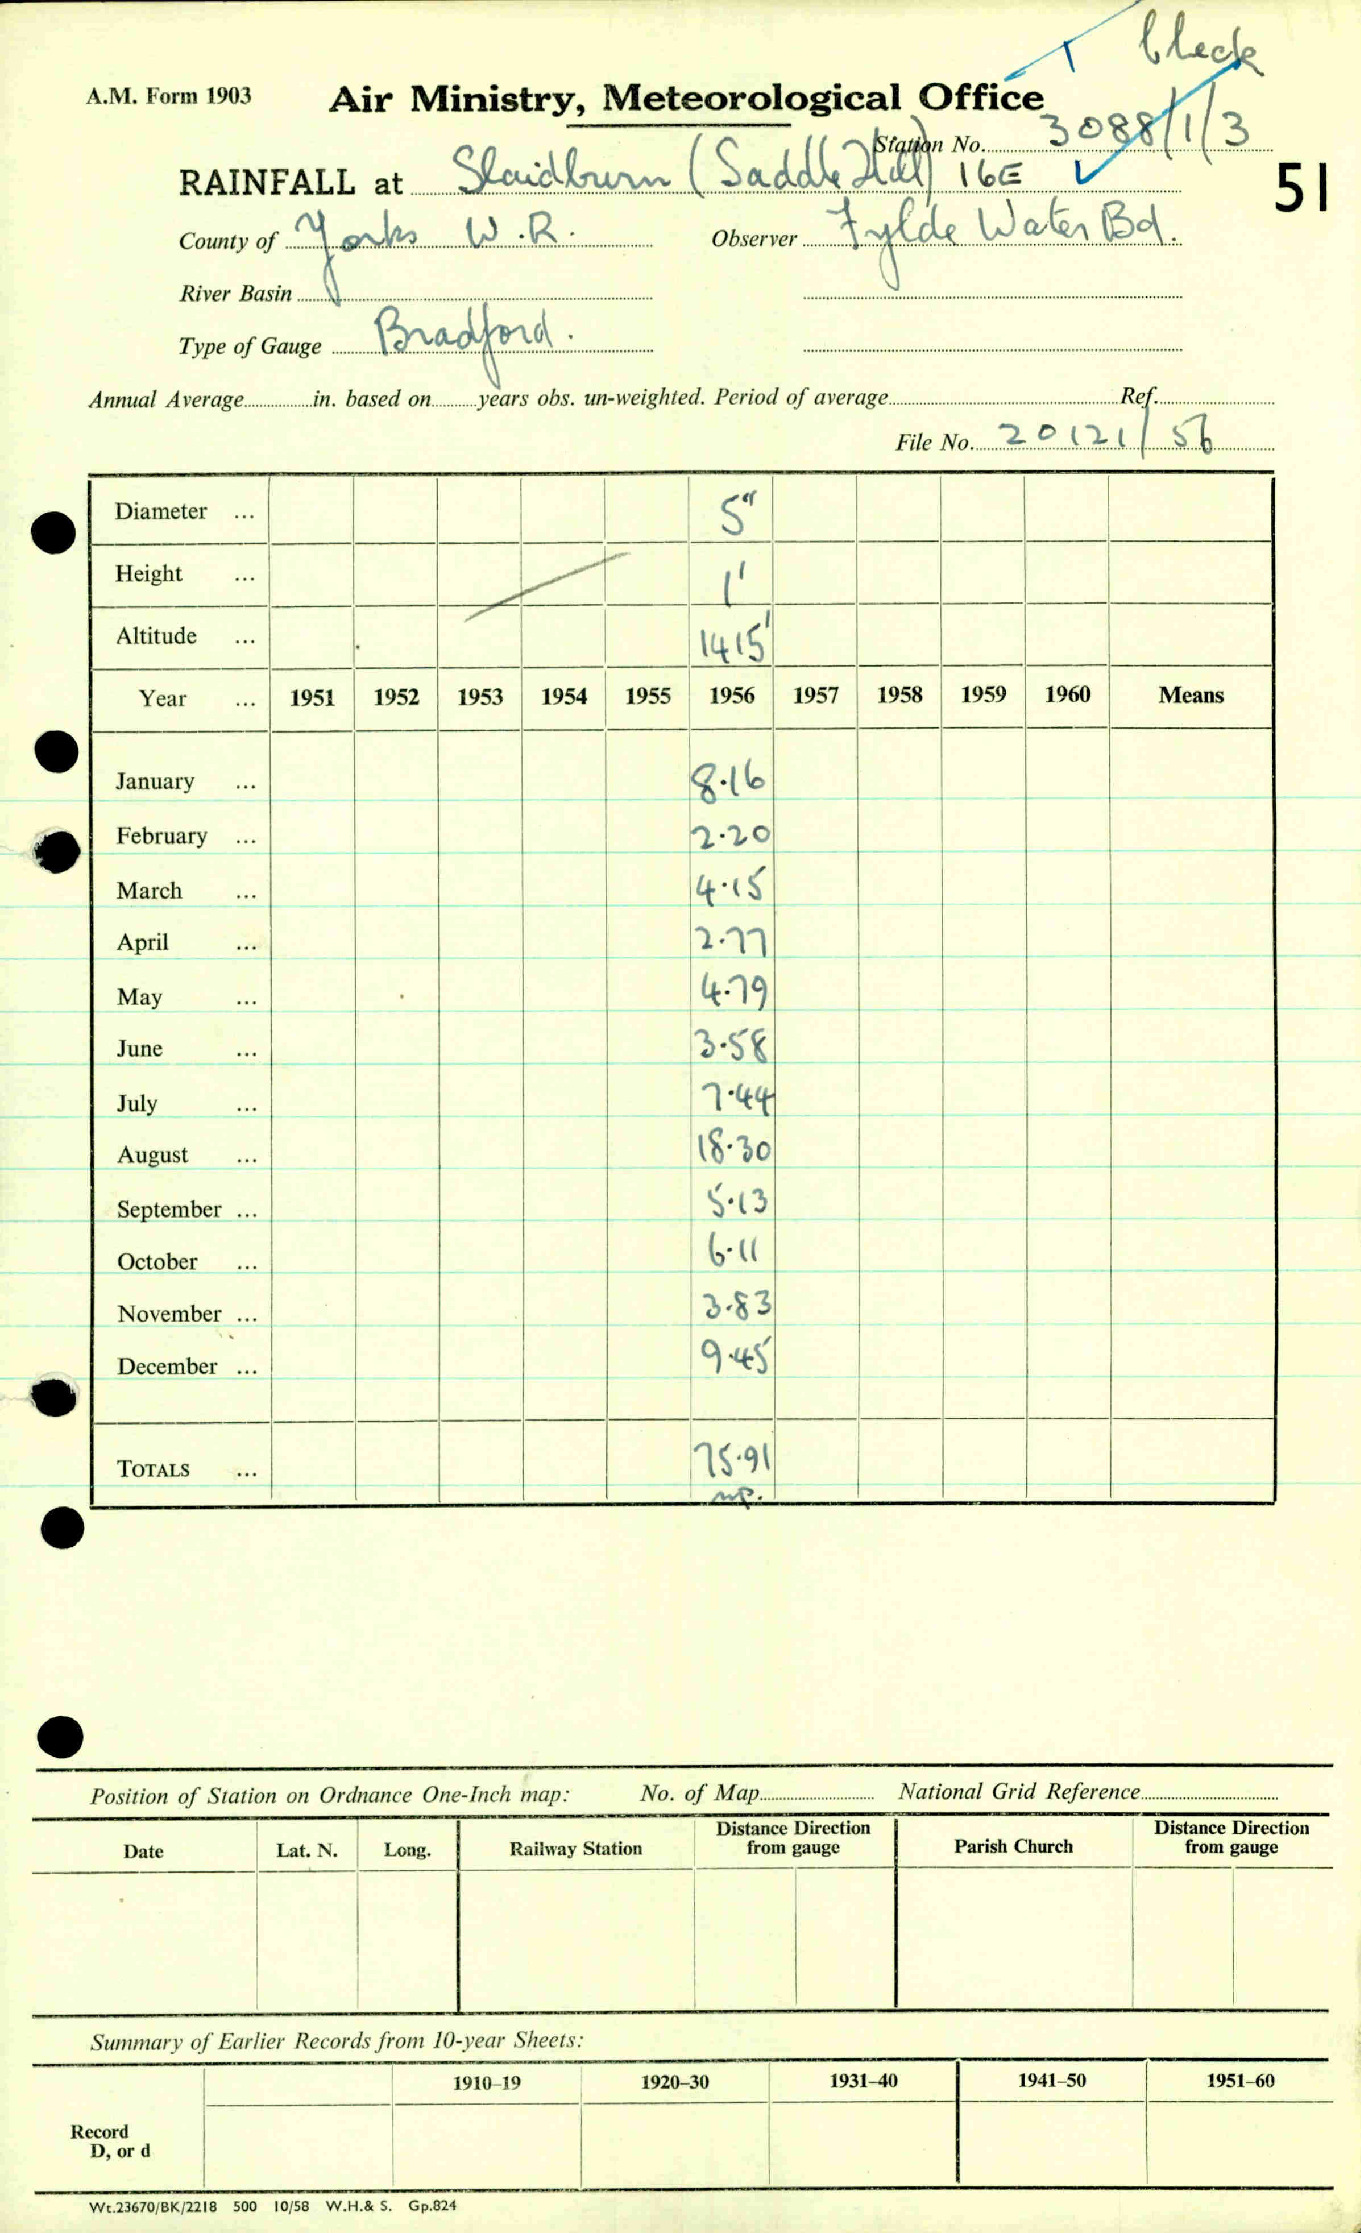 check
A.M. Form 1903 Air Ministry, Meteorological Office
Station No. 3088/1/3
RAINFALL at Slaidburn (Saddle Hill) 16E 51
County of Yorks W.R. Observer Fylde Water Bd.
River Basin
Type of Gauge Bradford.
Annual Average in. based on years obs. un-weighted. Period of average Ref.
File No. 20121/56
Diameter ... 5"
Height ... 1'
Altitude ... 1415'
Year ... 1951 1952 1953 1954 1955 1956 1957 1958 1959 1960 Means
January ... 8.16
February ... 2.20
March ... 4.15
April ... 2.77
May ... 4.79
June ... 3.58
July ... 7.44
August ... 18.30
September ... 5.13
October ... 6.11
November ... 3.83
December ... 9.45
TOTALS ... 75.91
Position of Station on Ordnance One-Inch map: No. of Map National Grid Reference
Date Lat. N. Long. Railway Station Distance Direction from gauge Parish Church Distance Direction from gauge
Summary of Earlier Records from 10-year Sheets:
1910-19 1920-30 1931-40 1941-50 1951-60
Record
D, or d
Wt.23670/BK/2218 500 10/58 W.H.& S. Gp.824